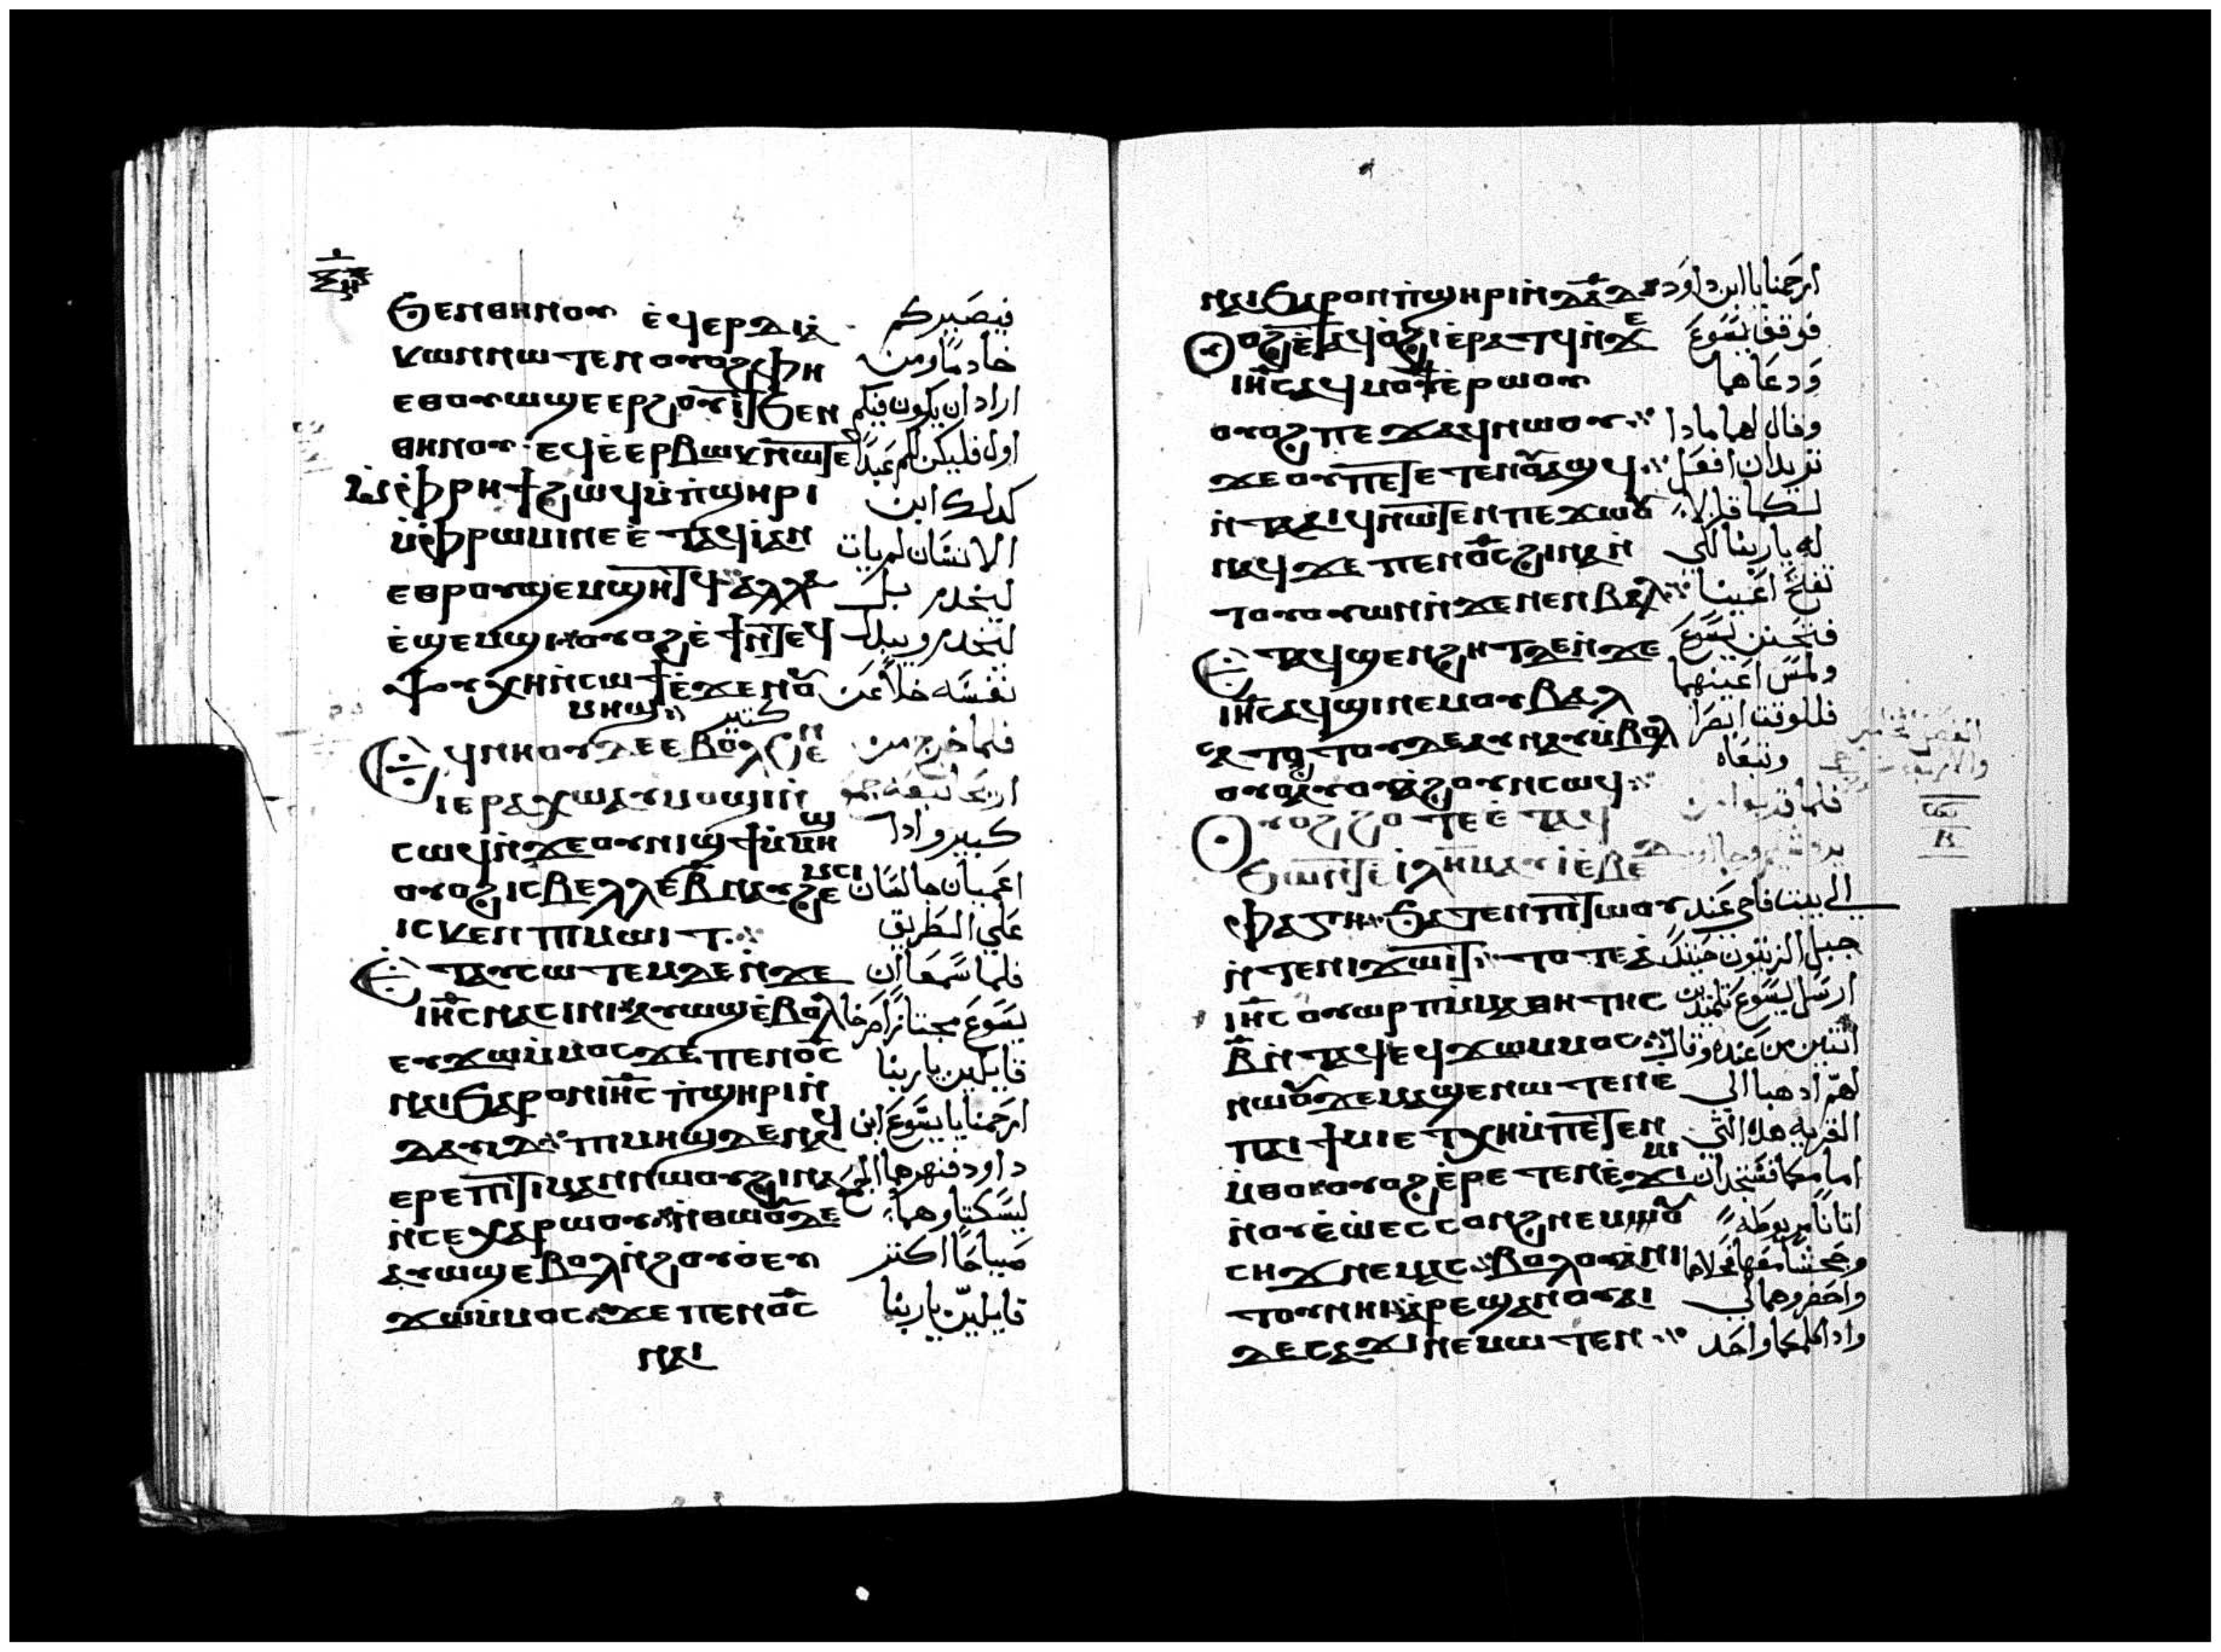 ϧⲉⲛⲑⲏⲛⲟⲩ ⲉ̀ϥⲉⲣⲇⲓⲁ̀ فيصَيركم
ⲕⲱⲛⲛⲱⲧⲉⲛⲟⲩⲟϩⲫⲏ خادمًا ومن
ⲉⲑⲟⲩⲱϣⲉⲉⲣϩⲟⲩⲓⲧϧⲉⲛ اراد ان يكون فيكم
ⲑⲏⲛⲟⲩ ⲉϥⲉ̀ⲉⲣⲃⲱⲕⲛⲱⲧⲉ اول فليكن لكم عَبدًا
ⲙ̀ⲫⲣⲏϯϩⲱϥⲙ̀ⲡ̀ϣⲏⲣⲓ كدلك ابن
ⲙ̀ⲫⲣⲱⲙⲓⲛⲉⲉ̀ⲧⲁϥⲓ̀ⲁⲛ الانسَان لم يات
ⲉⲑⲣⲟⲩϣⲉⲙϣⲏⲧϥ ⲁⲗⲗⲁ ليخدم بل
ⲉ̀ϣⲉⲙϣⲓ ⲟⲩⲟϩⲉ̀ϯⲛ̀ⲧⲉϥ ليخدم ويبدل
ⲯⲩⲭⲏⲛ̀ⲥⲱϯⲉ̀ϫⲉⲛⲟⲩ نفسَه خلاً عَن
ⲙⲏϣ كتير
ϥⲛⲏⲟⲩⲇⲉⲉⲃⲟⲗϧⲉⲛ فلما خرج من
ⲓⲉⲣⲁⲭⲱⲁⲩⲙⲟϣⲓⲛ̀ اريحَا تبعَه جمع
ⲥⲱϥⲛ̀ϫⲉⲟⲩⲛⲓϣϯⲙ̀ⲙⲏϣ كبير وادا
ⲟⲩⲟϩⲓⲥⲃⲉⲗⲗⲉⲃ̅ⲛⲁⲩϩⲉⲙⲥⲓ اعَميان جالسَان
ⲓⲥⲕⲉⲛⲡⲓⲙⲱⲓⲧ عَلي الطَريق
ⲉⲧⲁⲩⲥⲱⲧⲉⲙⲇⲉⲛ̀ϫⲉ فلما سَمعَا ان
ⲓⲏ̅ⲥⲛⲁⲥⲓⲛⲓ ⲁⲩⲱϣⲉ̀ⲃⲟⲗ يسَوعَ مجتازًا صَرخَا
ⲉⲩϫⲱⲙ̀ⲙⲟⲥϫⲉⲡⲉⲛⲟ̅ⲥ قايلين يا ربنا
ⲛⲁⲓϧⲁⲣⲟⲛⲓⲏ̅ⲥⲡ̀ϣⲏⲣⲓⲛ̀ ارحَمنا يا يسَوعَ ابن
ⲇⲁⲩⲓⲇ ⲡⲓⲙⲏϣⲇⲉⲛⲁϥ داود فنهرهما الجمعَ
ⲉⲣⲉⲡⲓⲧⲓⲙⲁⲛⲛⲱⲟⲩϩⲓⲛⲁ ليسَكتا وهما
ⲛ̀ⲥⲉⲭⲁⲣⲱⲟⲩ ⲛ̀ⲑⲱⲟⲩⲇⲉ
ⲁⲩⲱϣⲉⲃⲟⲗⲛ̀ϩⲟⲩⲟ̀ⲉⲩ صَياحًا اكتر
ϫⲱⲙ̀ⲙⲟⲥ ϫⲉⲡⲉⲛⲟ̅ⲥ قايليّن يا ربنا
ⲛⲁⲓ
ⲛⲁⲓϧⲁⲣⲟⲛⲡ̀ϣⲏⲣⲓⲛ̀ⲇⲁ̅ⲇ ارحَمنا يا ابن داوَد
ⲟⲩⲟϩⲉ̀ⲧⲁϥⲟ̀ϩⲓⲉ̀ⲣⲁⲧϥⲛ̀ϫⲉ فوقف يسَوعَ
ⲓⲏ̅ⲥⲁϥⲙⲟⲩϯⲉ̀ⲣⲱⲟⲩ وَدعَاهما
ⲟⲩⲟϩⲡⲉϫⲁϥⲛⲱⲟⲩ وقال لهما مادا
ϫⲉⲟⲩⲡⲉⲧⲉⲧⲉⲛⲟⲩⲁϣϥ تريدان افعَل
ⲛ̀ⲧⲁⲁⲓϥⲛⲱⲧⲉⲛⲡⲉϫⲱⲟⲩ لكما قالا
ⲛⲁϥϫⲉⲡⲉⲛⲟ̅ⲥϩⲓⲛⲁⲛ̀ له يا ربنا لكي
ⲧⲟⲩⲟⲩⲱⲛⲛ̀ϫⲉⲛⲉⲛⲃⲁⲗ تفتح اعَيننا
ⲉⲧⲁϥϣⲉⲛϩⲏⲧⲇⲉⲛ̀ϫⲉ فتحَنن يسَوعَ
ⲓⲏ̅ⲥⲁϥϭⲓⲛⲉⲙⲟⲩⲃⲁⲗ ولمسَ اعَينهما
ⲥⲁⲧⲟⲧⲟⲩⲇⲉⲁⲩⲛⲁⲩⲙ̀ⲃⲟⲗ فللوقت ابصَرا
ⲟⲩⲟϩⲁⲩⲟⲩⲁϩⲟⲩⲛⲥⲱϥ وتبعَاه
ⲟⲩⲟϩϩⲟⲧⲉⲉ̀ⲧⲁⲩ فلما قربوا من
ϧⲱⲛⲧⲉⲓ̀ⲗⲏⲙⲁⲩⲓ̀ⲉ̀ⲃⲉ
ⲫⲁⲅⲏ ϧⲁⲧⲉⲛⲡⲓⲧⲱⲟⲩ الي بيت فاجي عَند
ⲛ̀ⲧⲉⲛⲓϫⲱⲓⲧ ⲧⲟⲧⲉⲁ̀ جبل الزيتون حَينئد
ⲓⲏ̅ⲥⲟⲩⲱⲣⲡⲙⲁⲑⲏⲧⲏⲥ ارسَل يسَوعَ تلميدين
ⲃ̅ⲛ̀ⲧⲁϥⲉϥϫⲱⲙⲙⲟⲥ اتنين من عَنده وقال
ⲛⲱⲟⲩϫⲉⲙⲁϣⲉⲛⲱⲧⲉⲛⲉ̀ لهم ادهبا الي
ⲡⲁⲓϯⲙⲓⲉⲧⲭⲏⲙ̀ⲡⲉⲧⲉⲛ القريه هده التي
ⲙ̀ⲑⲟⲟⲩⲟϩⲉ̀ⲣⲉⲧⲉⲛⲉ̀ϫⲓⲙⲓ امامكما فستجدان
ⲛ̀ⲟⲩⲉ̀ⲱ̀ⲉⲥⲥⲟⲛϩⲛⲉⲙⲟⲩ اتانًا مربوطَه
ⲥⲏϫⲛⲉⲙⲁⲥ ⲃⲟⲗⲟⲩⲁ̀ⲛⲓ وجحَشًا معَها فحَلاهما
ⲧⲟⲩⲛⲏⲓ ⲁ̀ⲣⲉϣⲁⲛⲟⲩⲁⲓ واحَضروهما لي
ⲇⲉⲥⲁϫⲓⲛⲉⲙⲱⲧⲉⲛ وادا كلمكما واحَد